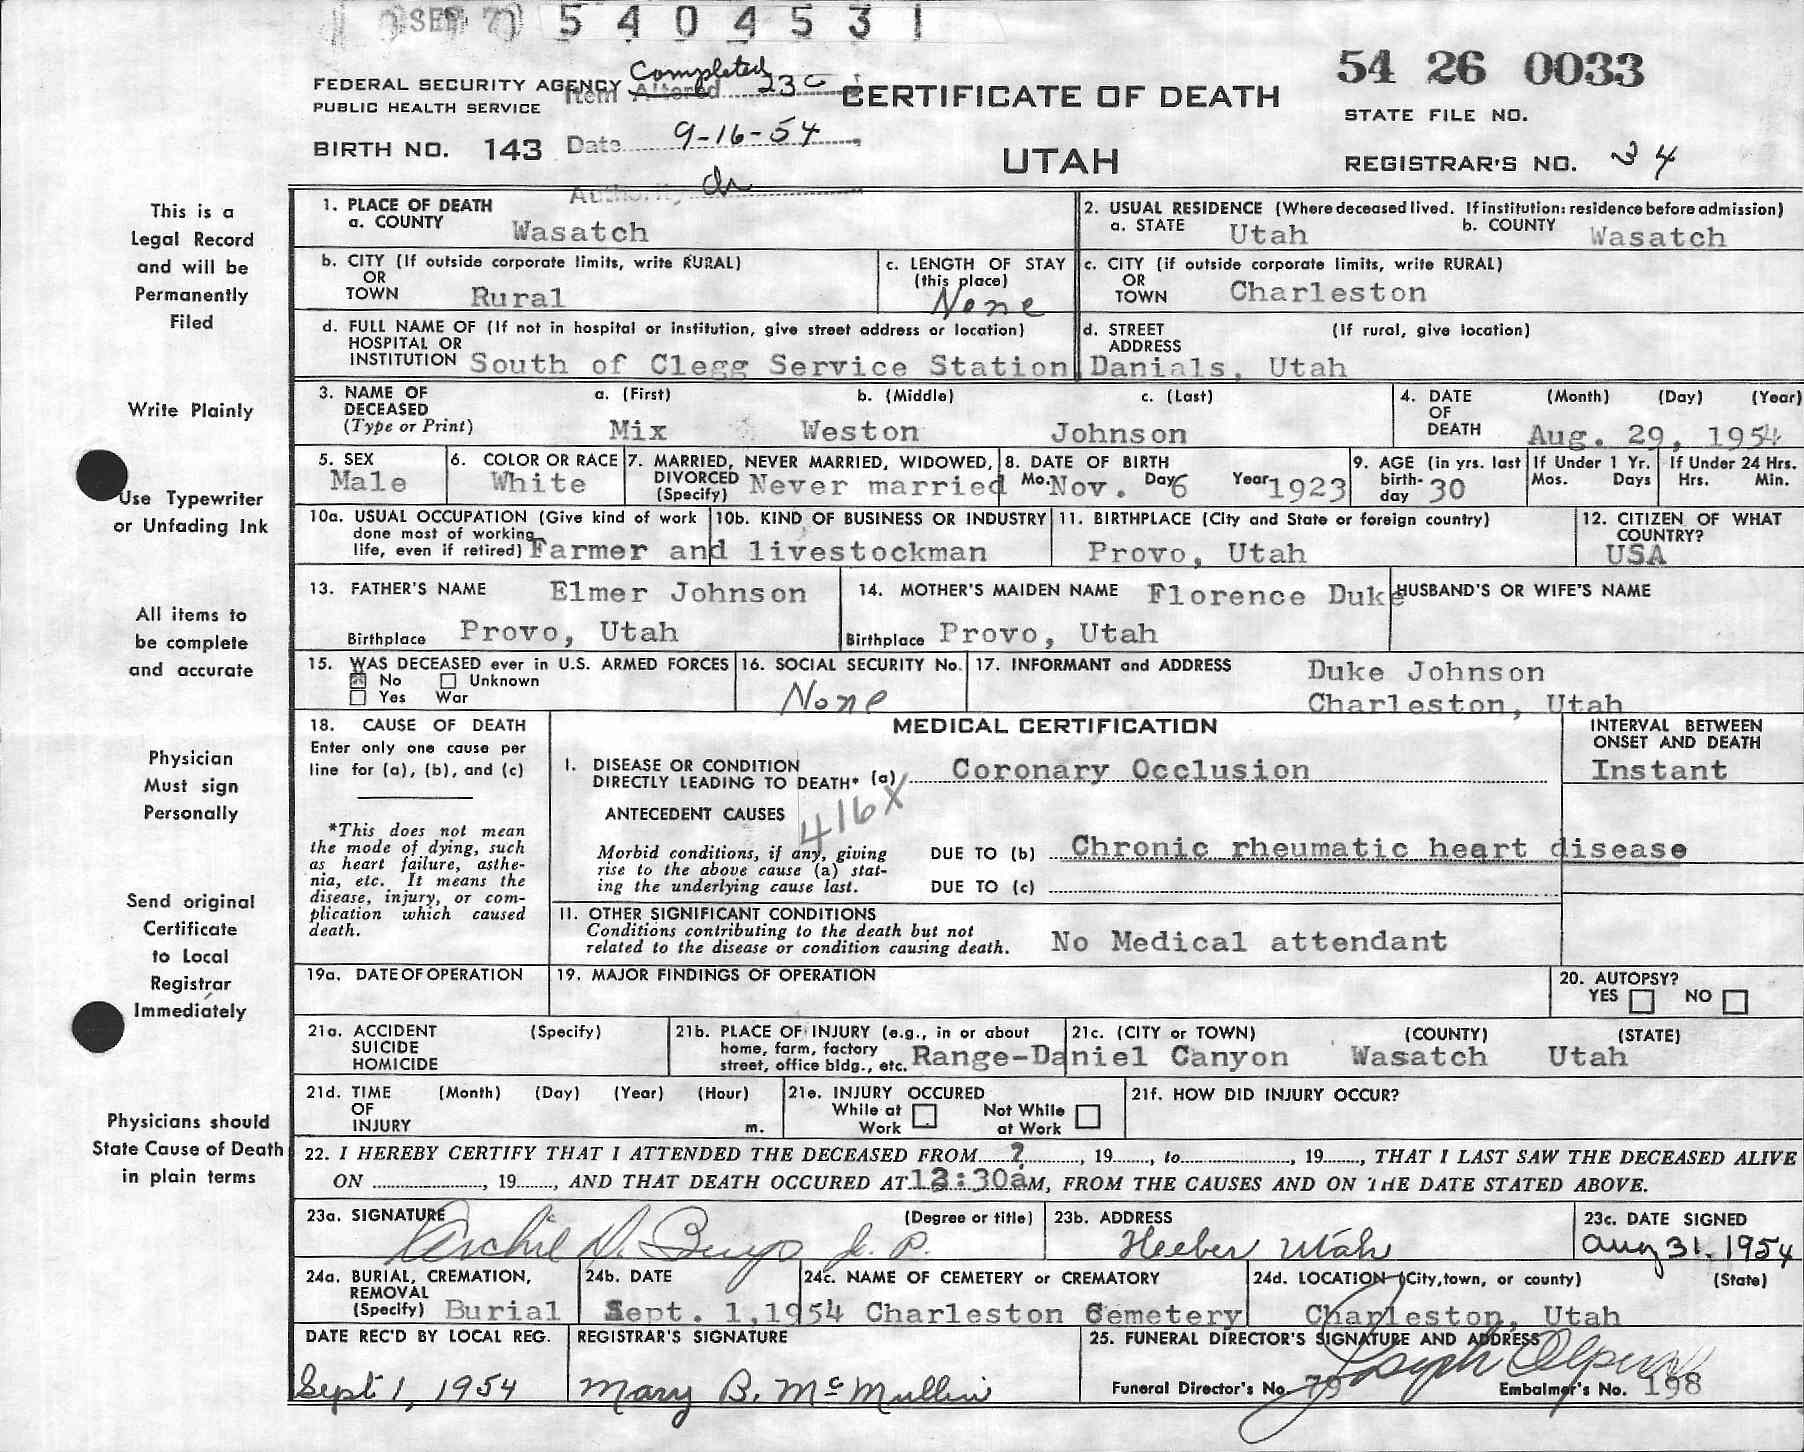 SEP 7 5 4 0 4 5 3 1
54 26 0033
STATE FILE NO.
FEDERAL SECURITY AGENCY
PUBLIC HEALTH SERVICE
Item Altered Completed 23c
CERTIFICATE OF DEATH
BIRTH NO. 143
Date 9-16-54
UTAH
REGISTRAR'S NO. 34
Authority dr
This is a
Legal Record
and will be
Permanently
Filed
Write Plainly
Use Typewriter
or Unfading Ink
All items to
be complete
and accurate
Physician
Must sign
Personally
Send original
Certificate
to Local
Registrar
Immediately
Physicians should
State Cause of Death
in plain terms
1. PLACE OF DEATH
a. COUNTY Wasatch
2. USUAL RESIDENCE (Where deceased lived. If institution: residence before admission)
a. STATE Utah b. COUNTY Wasatch
b. CITY (If outside corporate limits, write RURAL)
OR
TOWN Rural
c. LENGTH OF STAY
(this place)
None
c. CITY (if outside corporate limits, write RURAL)
OR
TOWN Charleston
d. FULL NAME OF (If not in hospital or institution, give street address or location)
HOSPITAL OR
INSTITUTION South of Clegg Service Station
d. STREET (If rural, give location)
ADDRESS
Danials, Utah
3. NAME OF a. (First) b. (Middle) c. (Last)
DECEASED
(Type or Print) Mix Weston Johnson
4. DATE (Month) (Day) (Year)
OF
DEATH Aug. 29, 1954
5. SEX
Male
6. COLOR OR RACE
White
7. MARRIED, NEVER MARRIED, WIDOWED,
DIVORCED
(Specify) Never married
8. DATE OF BIRTH
Mo. Nov. Day 6 Year 1923
9. AGE (in yrs. last
birth-
day 30
If Under 1 Yr.
Mos. Days
If Under 24 Hrs.
Hrs. Min.
10a. USUAL OCCUPATION (Give kind of work
done most of working
life, even if retired) Farmer and livestockman
10b. KIND OF BUSINESS OR INDUSTRY
11. BIRTHPLACE (City and State or foreign country)
Provo, Utah
12. CITIZEN OF WHAT
COUNTRY?
USA
13. FATHER'S NAME Elmer Johnson
Birthplace Provo, Utah
14. MOTHER'S MAIDEN NAME Florence Duke
Birthplace Provo, Utah
HUSBAND'S OR WIFE'S NAME
15. WAS DECEASED ever in U.S. ARMED FORCES
No Unknown
Yes War
16. SOCIAL SECURITY No.
None
17. INFORMANT and ADDRESS Duke Johnson
Charleston, Utah
18. CAUSE OF DEATH
Enter only one cause per
line for (a), (b), and (c)
*This does not mean
the mode of dying, such
as heart failure, asthe-
nia, etc. It means the
disease, injury, or com-
plication which caused
death.
MEDICAL CERTIFICATION
INTERVAL BETWEEN
ONSET AND DEATH
I. DISEASE OR CONDITION
DIRECTLY LEADING TO DEATH* (a) Coronary Occlusion
Instant
ANTECEDENT CAUSES
416X
Morbid conditions, if any, giving
rise to the above cause (a) stat-
ing the underlying cause last.
DUE TO (b) Chronic rheumatic heart disease
DUE TO (c)
II. OTHER SIGNIFICANT CONDITIONS
Conditions contributing to the death but not
related to the disease or condition causing death.
No Medical attendant
19a. DATE OF OPERATION
19. MAJOR FINDINGS OF OPERATION
20. AUTOPSY?
YES NO
21a. ACCIDENT (Specify)
SUICIDE
HOMICIDE
21b. PLACE OF INJURY (e.g., in or about
home, farm, factory
street, office bldg., etc. Range-Daniel Canyon
21c. (CITY or TOWN) (COUNTY) (STATE)
Wasatch Utah
21d. TIME (Month) (Day) (Year) (Hour)
OF
INJURY m.
21e. INJURY OCCURED
While at Work
Not While at Work
21f. HOW DID INJURY OCCUR?
22. I HEREBY CERTIFY THAT I ATTENDED THE DECEASED FROM ?, 19, to, 19, THAT I LAST SAW THE DECEASED ALIVE
ON, 19, AND THAT DEATH OCCURED AT 12:30a M, FROM THE CAUSES AND ON THE DATE STATED ABOVE.
23a. SIGNATURE (Degree or title)
Archie D. J. P.
23b. ADDRESS
Heeber Utah
23c. DATE SIGNED
Aug 31, 1954
24a. BURIAL, CREMATION,
REMOVAL
(Specify) Burial
24b. DATE
Sept. 1, 1954
24c. NAME OF CEMETERY or CREMATORY
Charleston Cemetery
24d. LOCATION (City, town, or county) (State)
Charleston, Utah
DATE REC'D BY LOCAL REG.
Sept 1, 1954
REGISTRAR'S SIGNATURE
Mary B. McMullin
25. FUNERAL DIRECTOR'S SIGNATURE AND ADDRESS
Joseph Olpin
Funeral Director's No. 79 Embalmer's No. 198